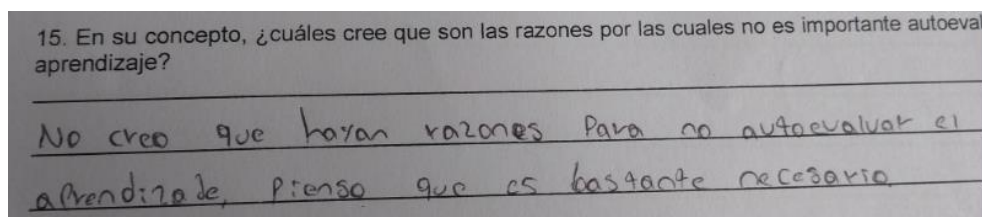 15. En su concepto, ¿cuáles cree que son las razones por las cuales no es importante autoeval
aprendizaje?
No creo que hayan razones Para no autoevaluar el
aprendizaje, Pienso que es bastante necesario